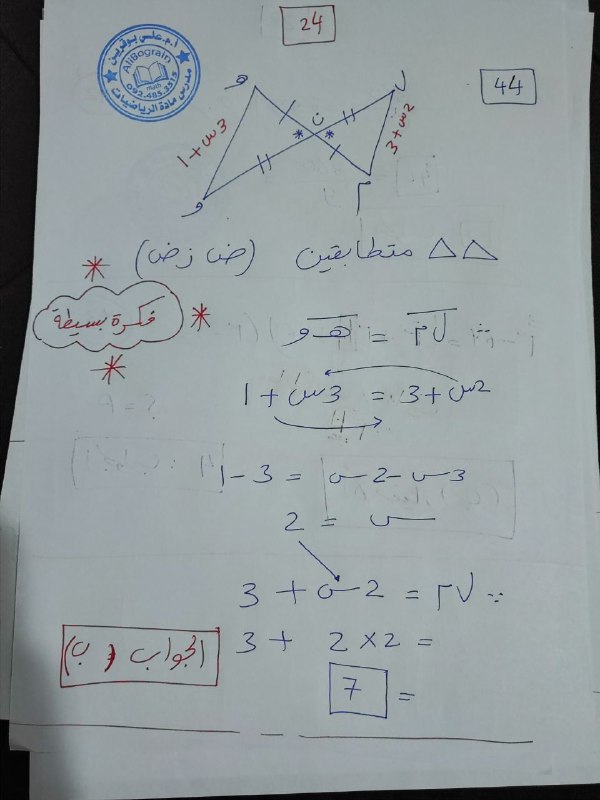 24
44
أ.م.علي بوقرين
AliBograin
math
092.485.3515
مدرس مادة الرياضيات
هـ
ل
ن
و
م
3س + 1
2س + 3
* *
△△ متطابقين (ض ز ض)
فكرة بسيطة
∴ ل م = هـ و
2س + 3 = 3س + 1
3س - 2س = 3 - 1
س = 2
∴ ل م = 2س + 3
= 2 × 2 + 3
= 7
الجواب (ب)